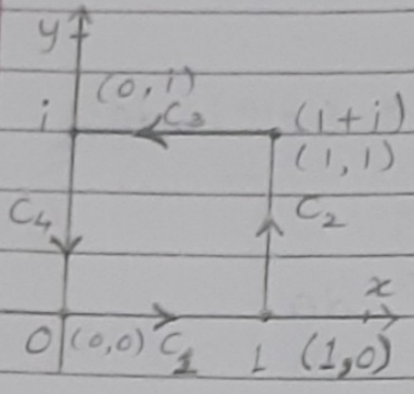 y
(0,i)
i C3 (1+i)
(1,1)
C4 C2
x
0 (0,0) C1 1 (1,0)